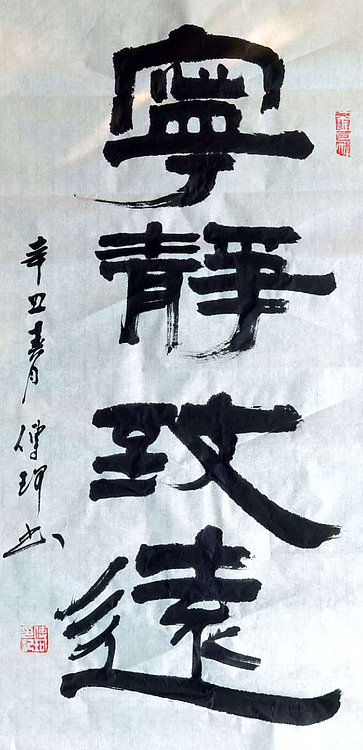 寧靜致遠
辛丑春月傅珂书